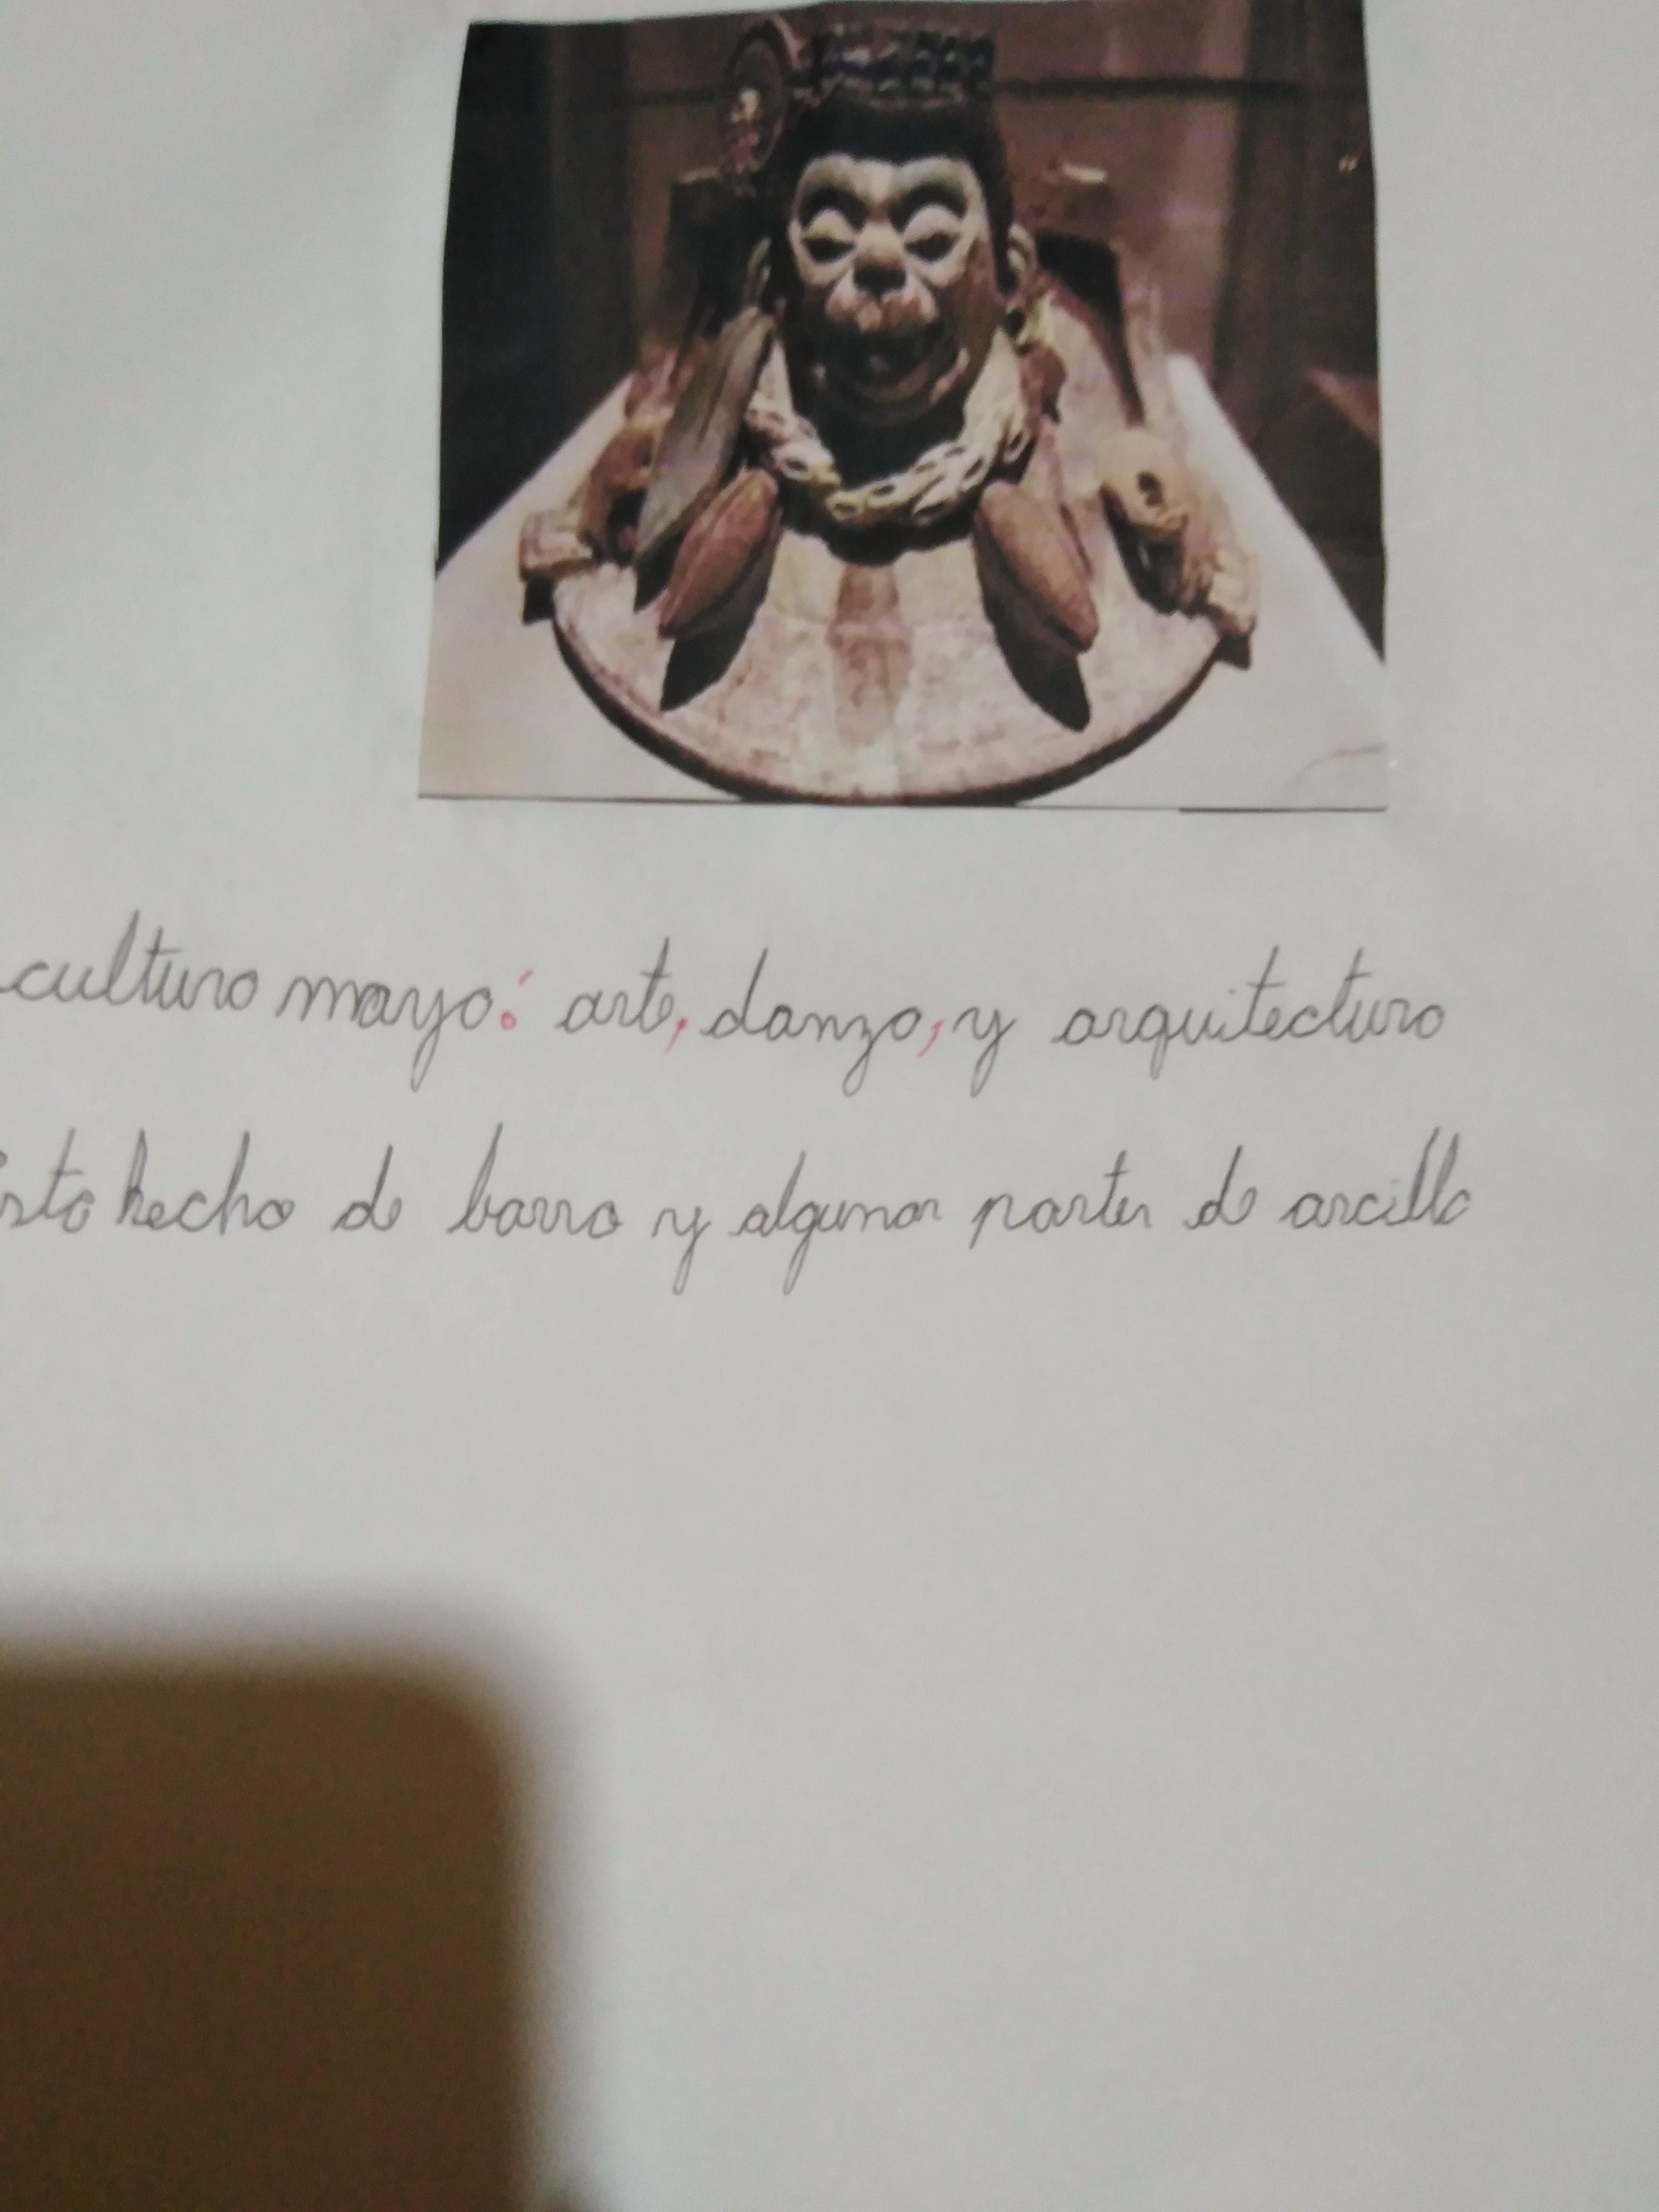 cultura maya: arte, danza, y arquitectura
esta hecho de barro y algunas partes de arcilla